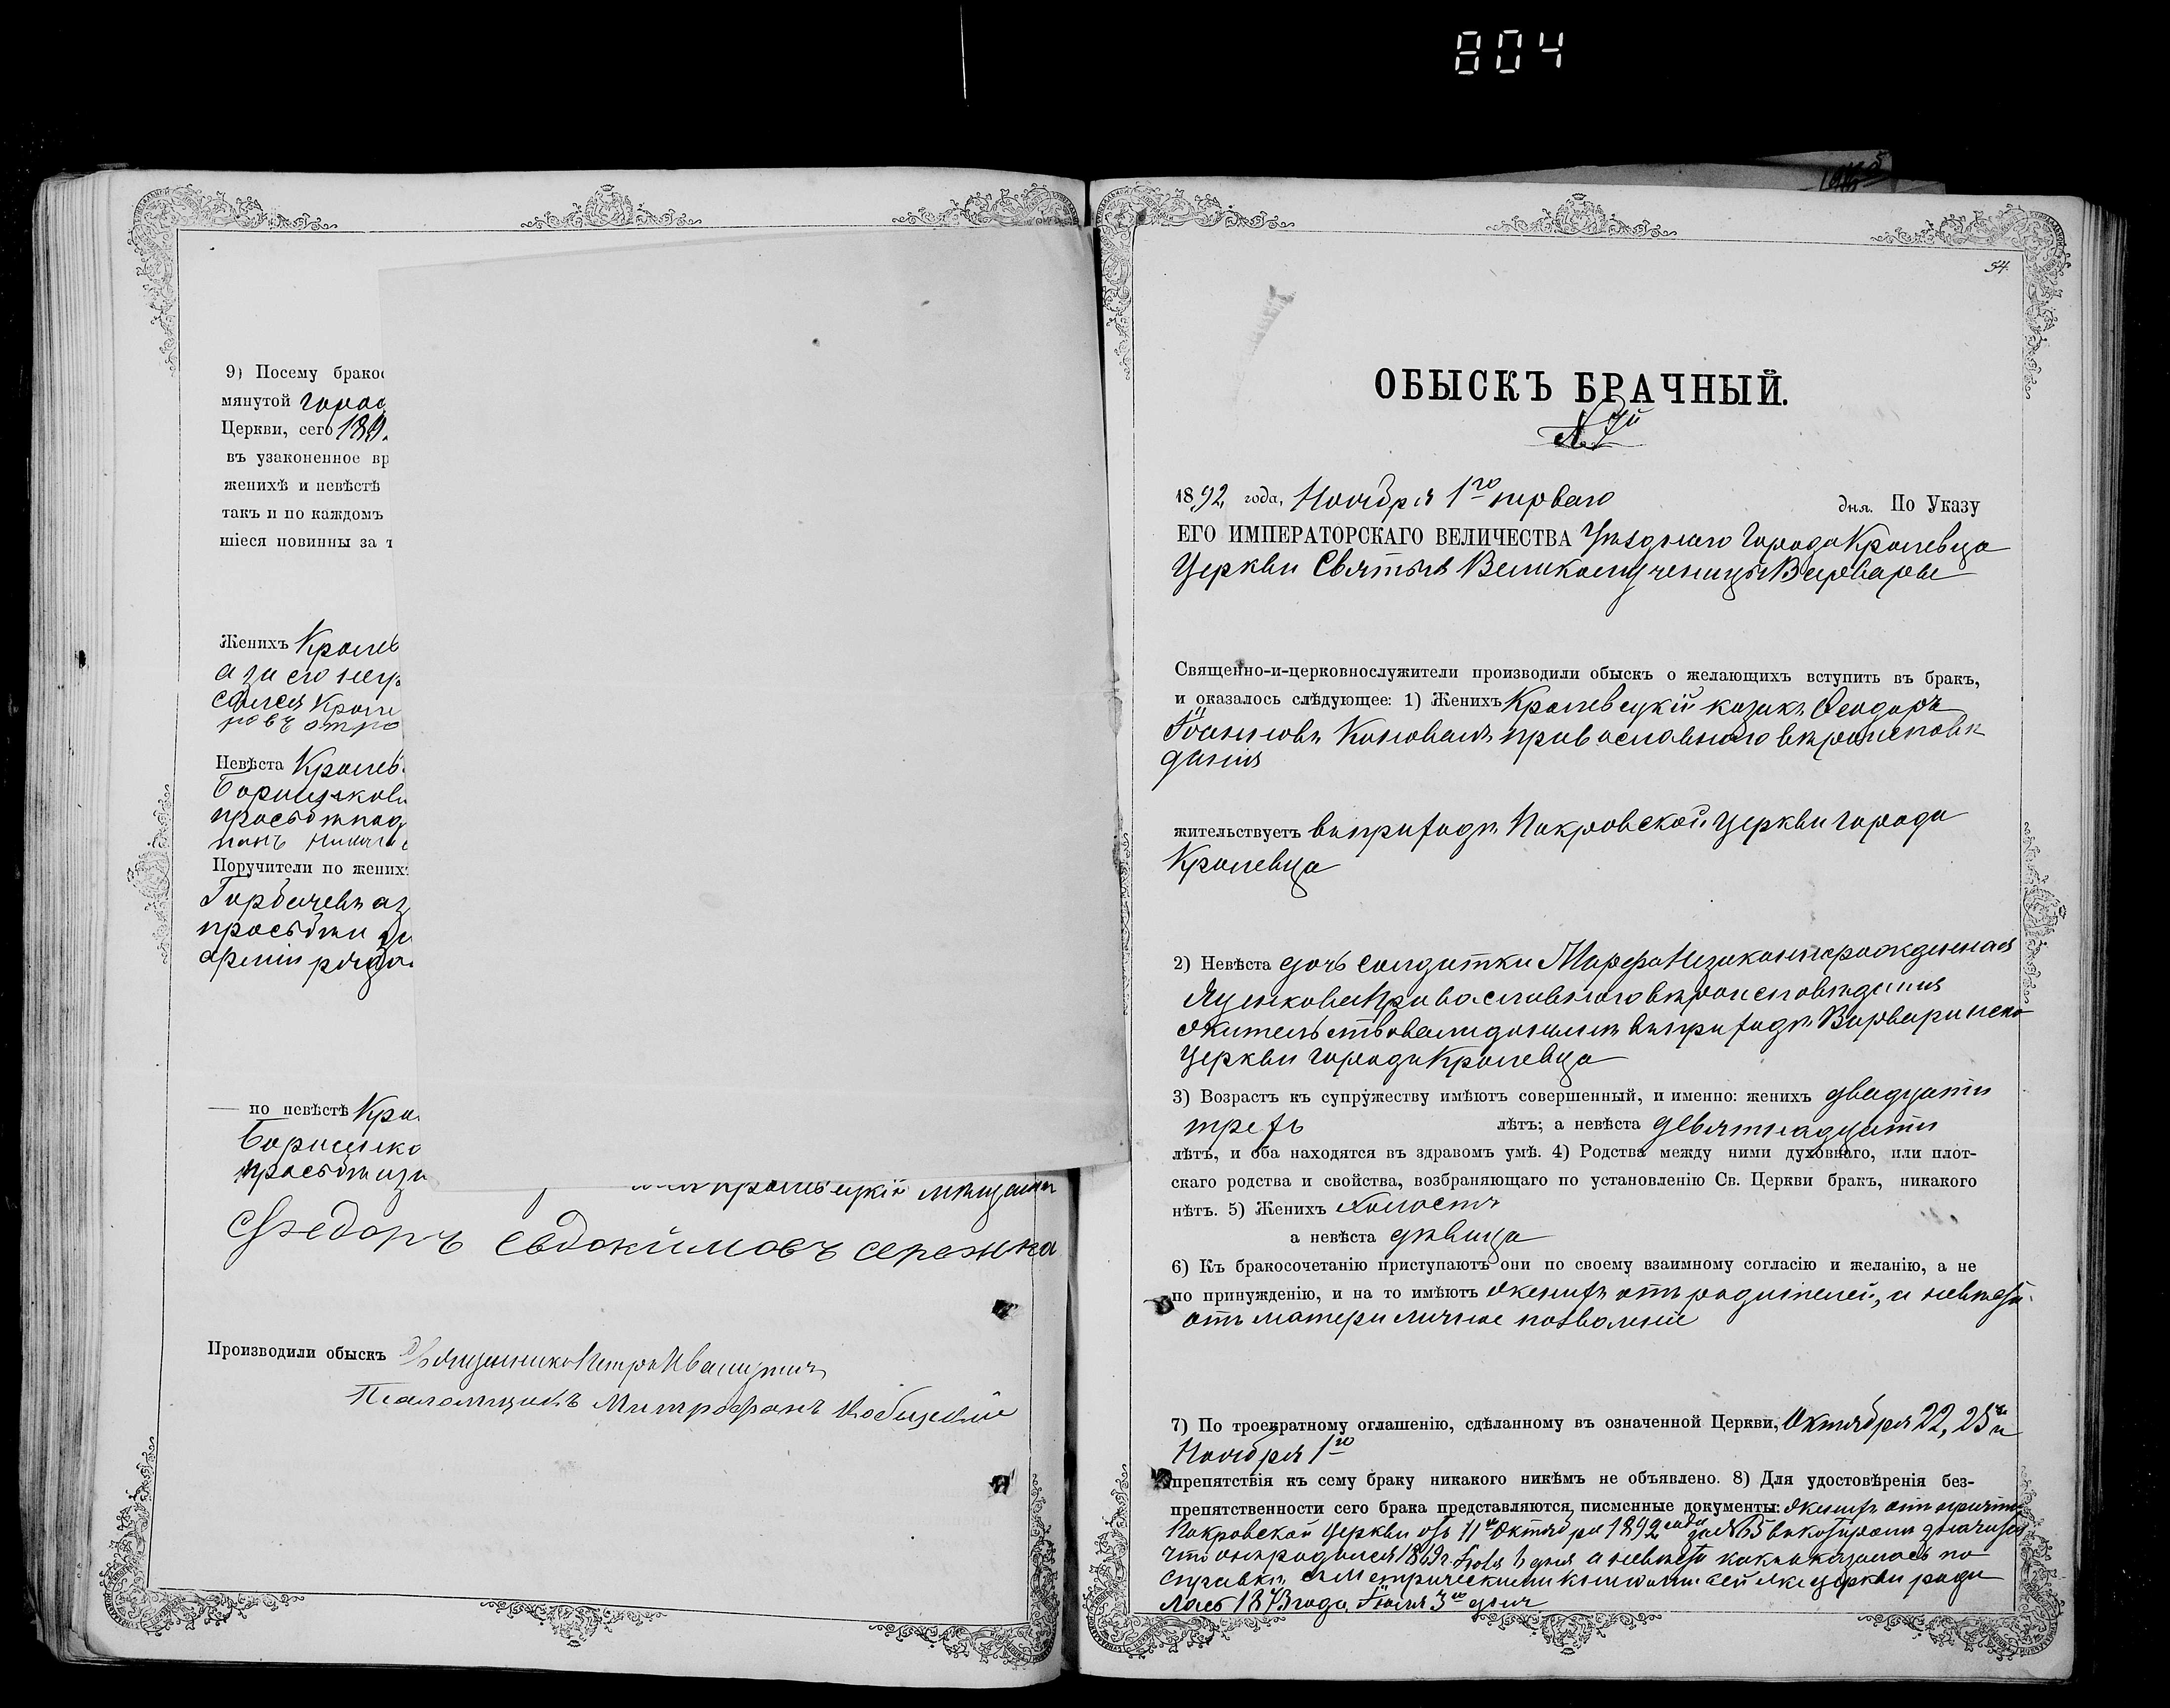 804
9) Посему брако
мянутой город
Церкви, сего 189
въ узаконенное вр
женихѣ и невѣстѣ
такъ и по каждомъ
шіеся повинны за т
Женихъ Кролев
а за его негр
Невѣста Кролев
Борищекова
просьбѣ
Поручители по жених
Горбачевъ а
просьбѣ
по невѣстѣ Кро
Борищеко
просьбѣ
Кролевецкій мѣщанинъ
Федоръ Евдокимовъ Сережка
Производили обыскъ Священникъ Петръ
Псаломщикъ Митрофанъ
54.
ОБЫСКЪ БРАЧНЫЙ.
№ 7й
1892 года, Ноября 1го перваго дня. По Указу
ЕГО ИМПЕРАТОРСКАГО ВЕЛИЧЕСТВА Уѣзднаго Города Кролевца
Церкви Святыя Великомученицы Варвары
Священно-и-церковнослужители производили обыскъ о желающихъ вступить въ бракъ,
и оказалось слѣдующее: 1) Женихъ Кролевецкій козакъ Феодоръ
Іоанновъ Коновалъ православнаго вѣроисповѣ
данія
жительствуетъ въ приходѣ Покровской Церкви города
Кролевца
2) Невѣста дочь солдатки Марфа Незаконнорожденная
Яценкова Православнаго вѣроисповѣданія
жительствовала донынѣ въ приходѣ Варваринской
Церкви города Кролевца
3) Возрастъ къ супружеству имѣютъ совершенный, и именно: женихъ двадцати
трехъ лѣтъ; а невѣста девятнадцати
лѣтъ, и оба находятся въ здравомъ умѣ. 4) Родства между ними духовнаго, или плот-
скаго родства и свойства, возбраняющаго по установленію Св. Церкви бракъ, никакого
нѣтъ. 5) Женихъ холостъ
а невѣста дѣвица
6) Къ бракосочетанію приступаютъ они по своему взаимному согласію и желанію, а не
по принужденію, и на то имѣютъ женихъ отъ родителей, а невѣста
отъ матери личное позволеніе
7) По троекратному оглашенію, сдѣланному въ означенной Церкви, Октября 22, 25 и
Ноября 1го
препятствія къ сему браку никакого никѣмъ не объявлено. 8) Для удостовѣренія без-
препятственности сего брака представляются писменные документы: женихъ отъ причта
Покровской Церкви отъ 11го Октября 1892 года за № 65 въ которомъ значится
что онъ родился 1869г. дня а невѣста какъ оказалось по
справкѣ съ метрическими книгами сей же церкви роди
лась 1873 года, Іюля 3го дня